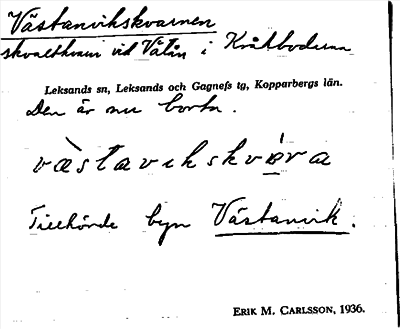 Västanvikskvarnen
skvaltkvarn vid Våtån i Kråkbodarna
Leksands sn, Leksands och Gagnefs tg, Kopparbergs län.
Den är nu borta.
væ̀stavikskvára
Tillhörde byn Västanvik.
ERIK M. CARLSSON, 1936.